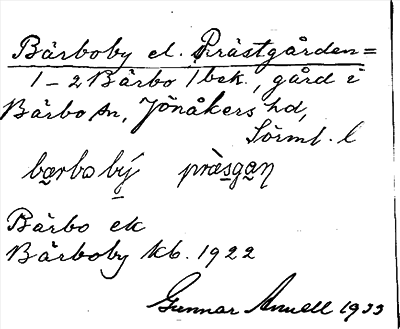 Bärboby el. Prästgården =
1–2 Bärbo 1 bek., gård i
Bärbo sn, Jönåkers hd,
Sörml. l
bärbo bý prä̀sga̱ṉ
Bärbo ek
Bärboby kb. 1922
Gunnar Annell 1933